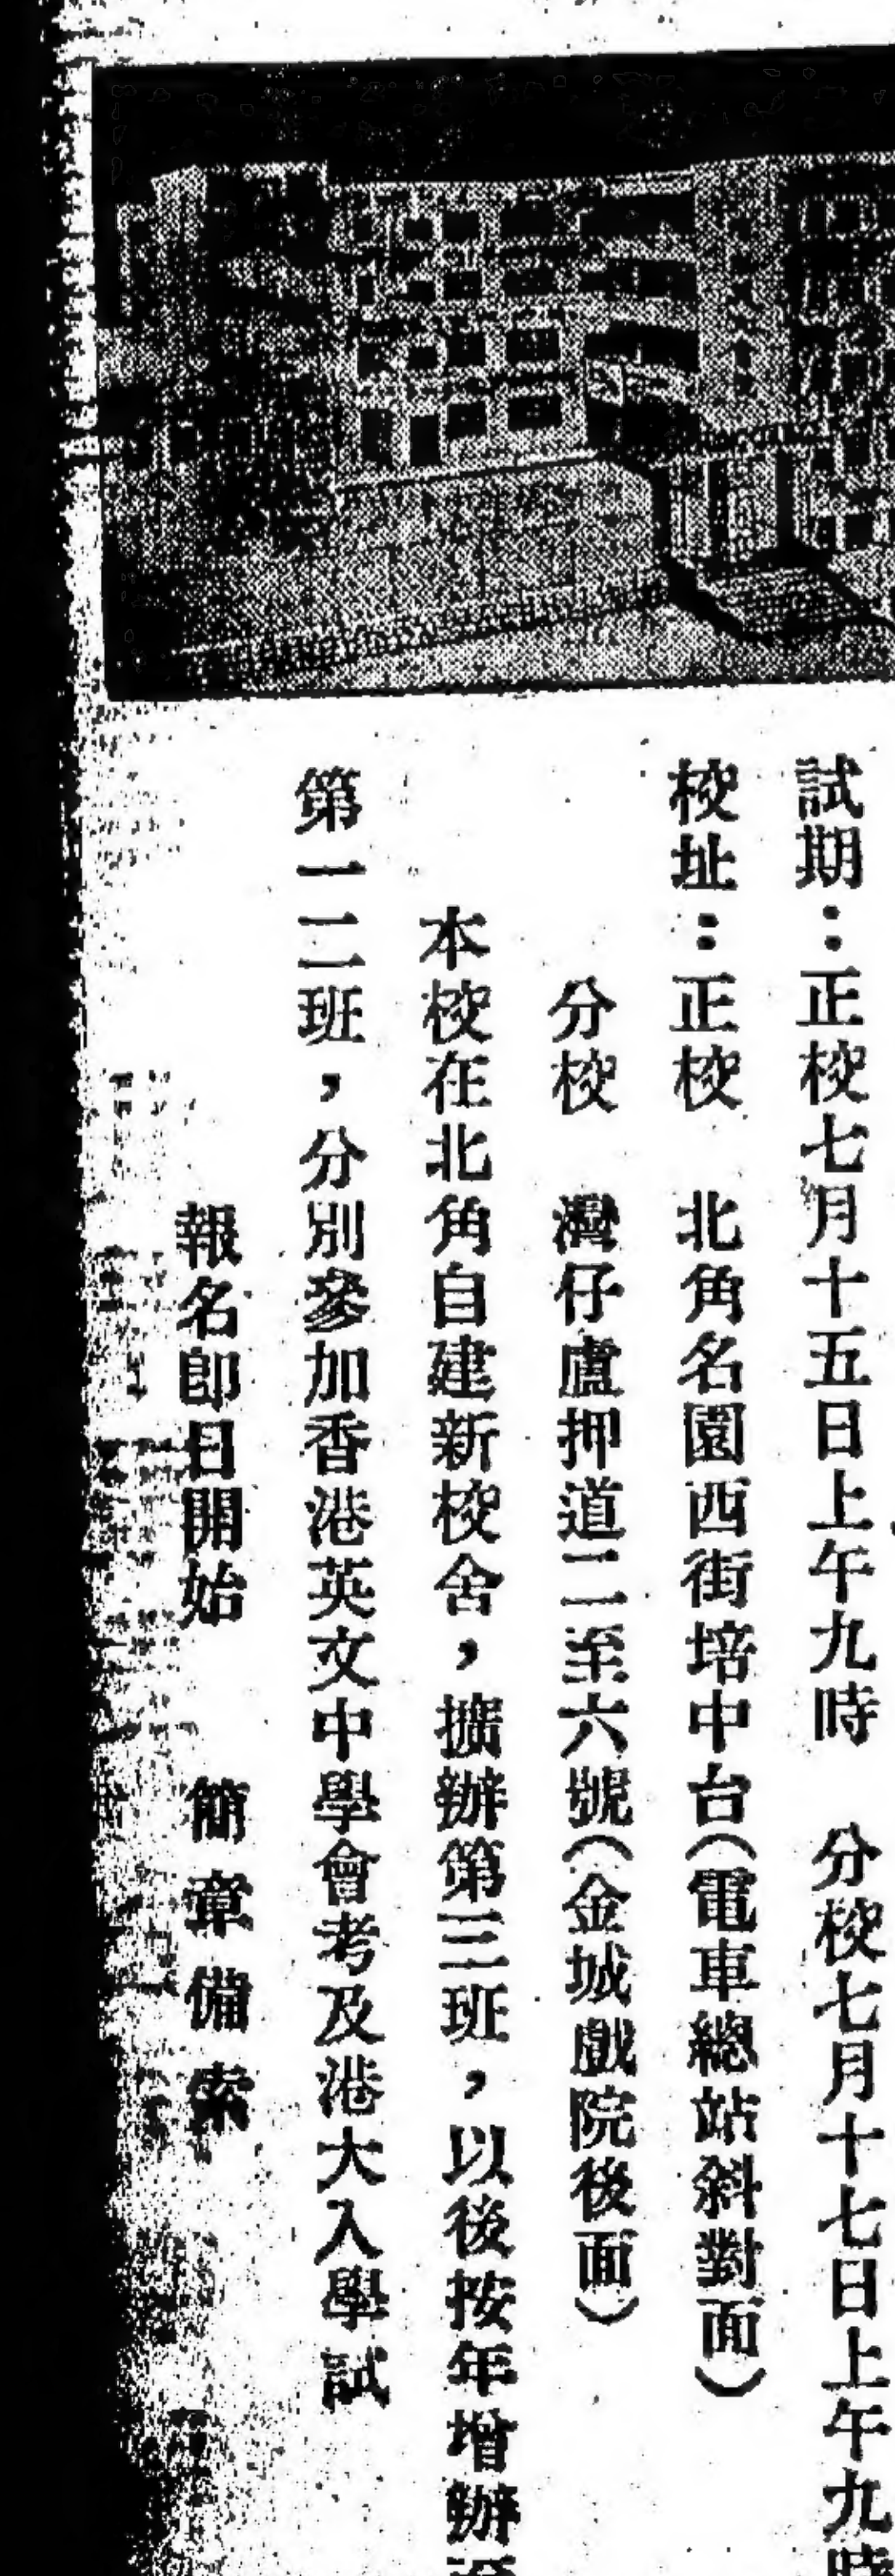 試期：正校七月十五日上午九時　分校七月十七日上午九時
校址：正校　北角名園西街培中台（電車總站斜對面）
分校　灣仔盧押道二至六號（金城戲院後面）
本校在北角自建新校舍，擴辦第三班，以後按年增辦至
第一二班，分別參加香港英文中學會考及港大入學試
報名即日開始　簡章備索